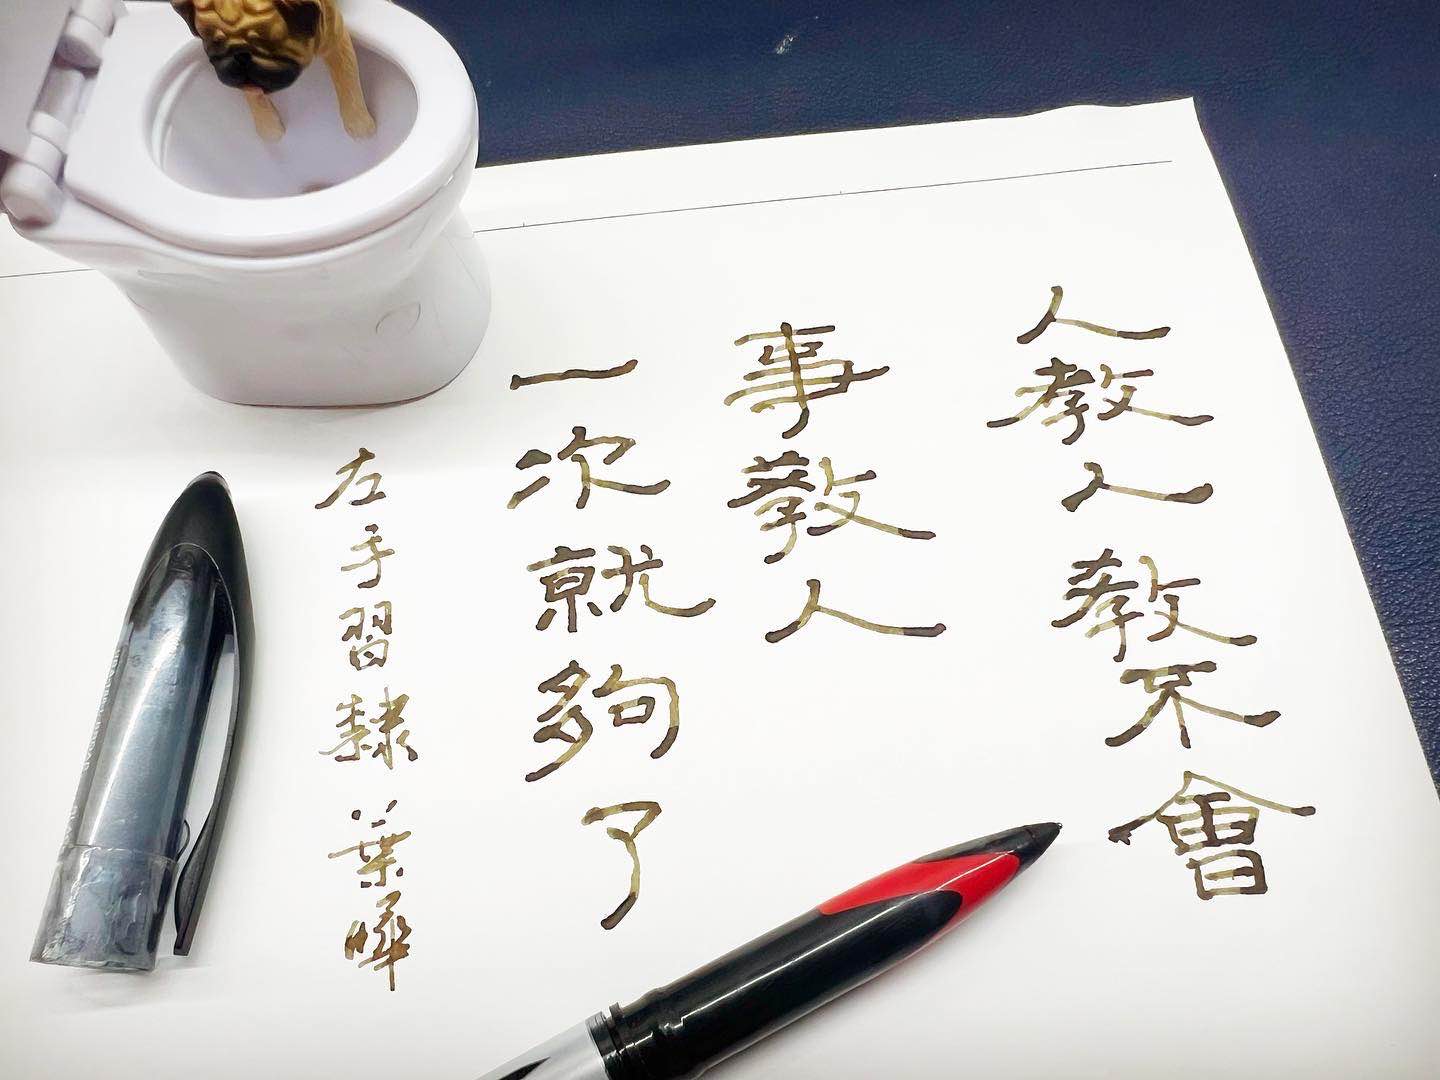 人教人教不會
事教人
一次就夠了
左手習隸 葉曄